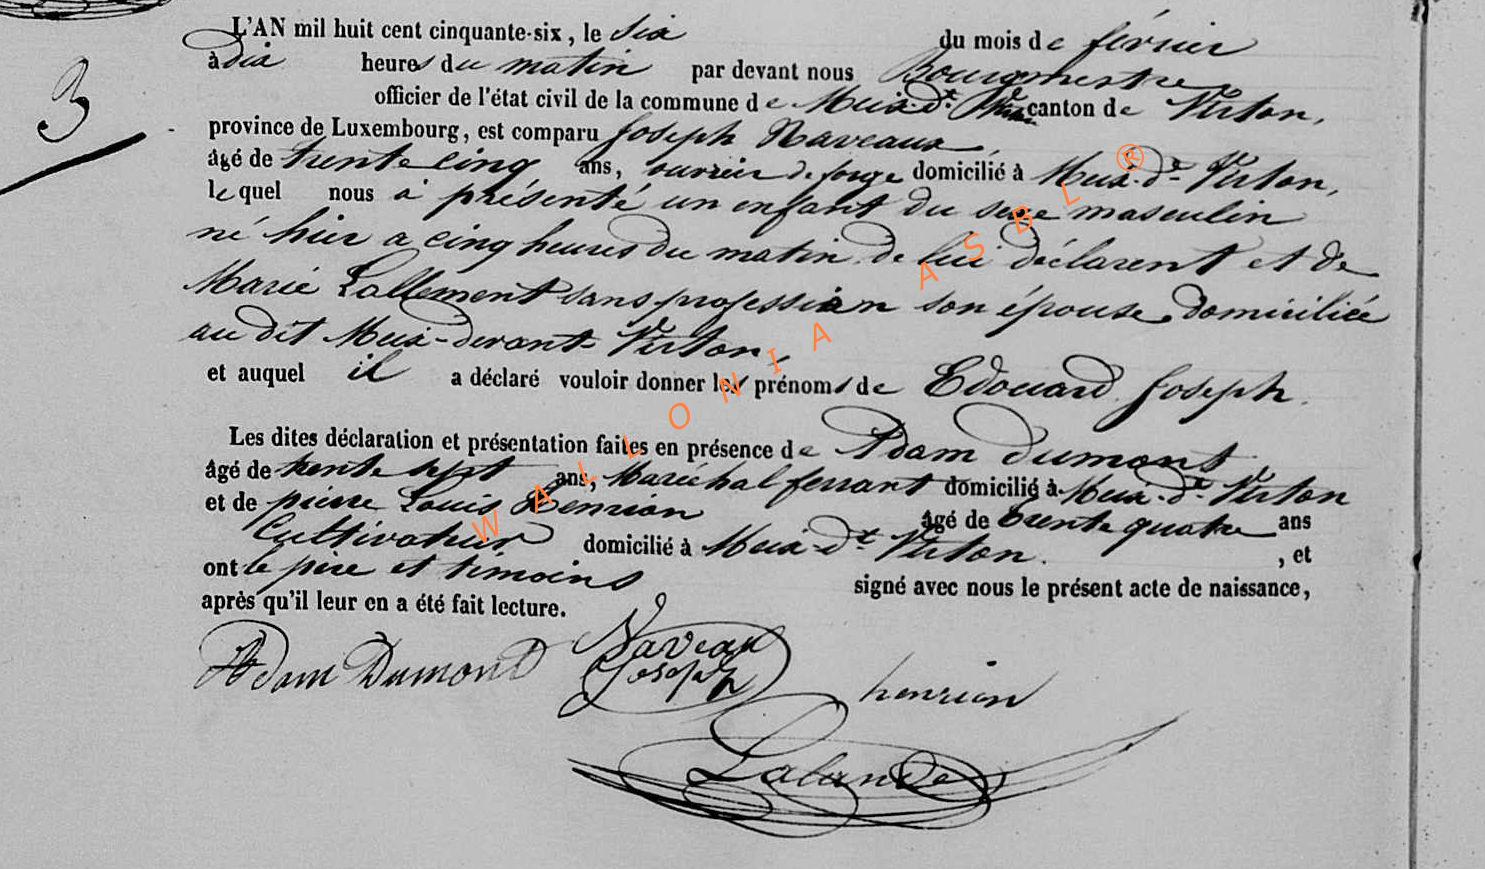 3
L'AN mil huit cent cinquante-six, le six du mois de février
à dix heures du matin par devant nous Bourgmestre
officier de l'état civil de la commune de Meix-dt-Virton canton de Virton,
province de Luxembourg, est comparu Joseph Naveaux,
âgé de trente cinq ans, ouvrier de forge domicilié à Meix-dt-Virton,
lequel nous a présenté un enfant du sexe masculin
né hier a cinq heures du matin de lui déclarent et de
Marie Lallement sans profession son épouse domiciliée
au dit Meix-devant-Virton,
et auquel il a déclaré vouloir donner les prénoms de Edouard Joseph.
Les dites déclaration et présentation faites en présence de Adam Dumont
âgé de trente sept ans, Maréchal ferrant domicilié à Meix-dt-Virton
et de pierre Louis Henrion âgé de trente quatre ans
Cultivateur domicilié à Meix-dt Virton. , et
ont le père et témoins signé avec nous le présent acte de naissance,
après qu'il leur en a été fait lecture.
Adam Dumont Naveau Joseph henrion
Lalande
WALLONIA ASBL ®